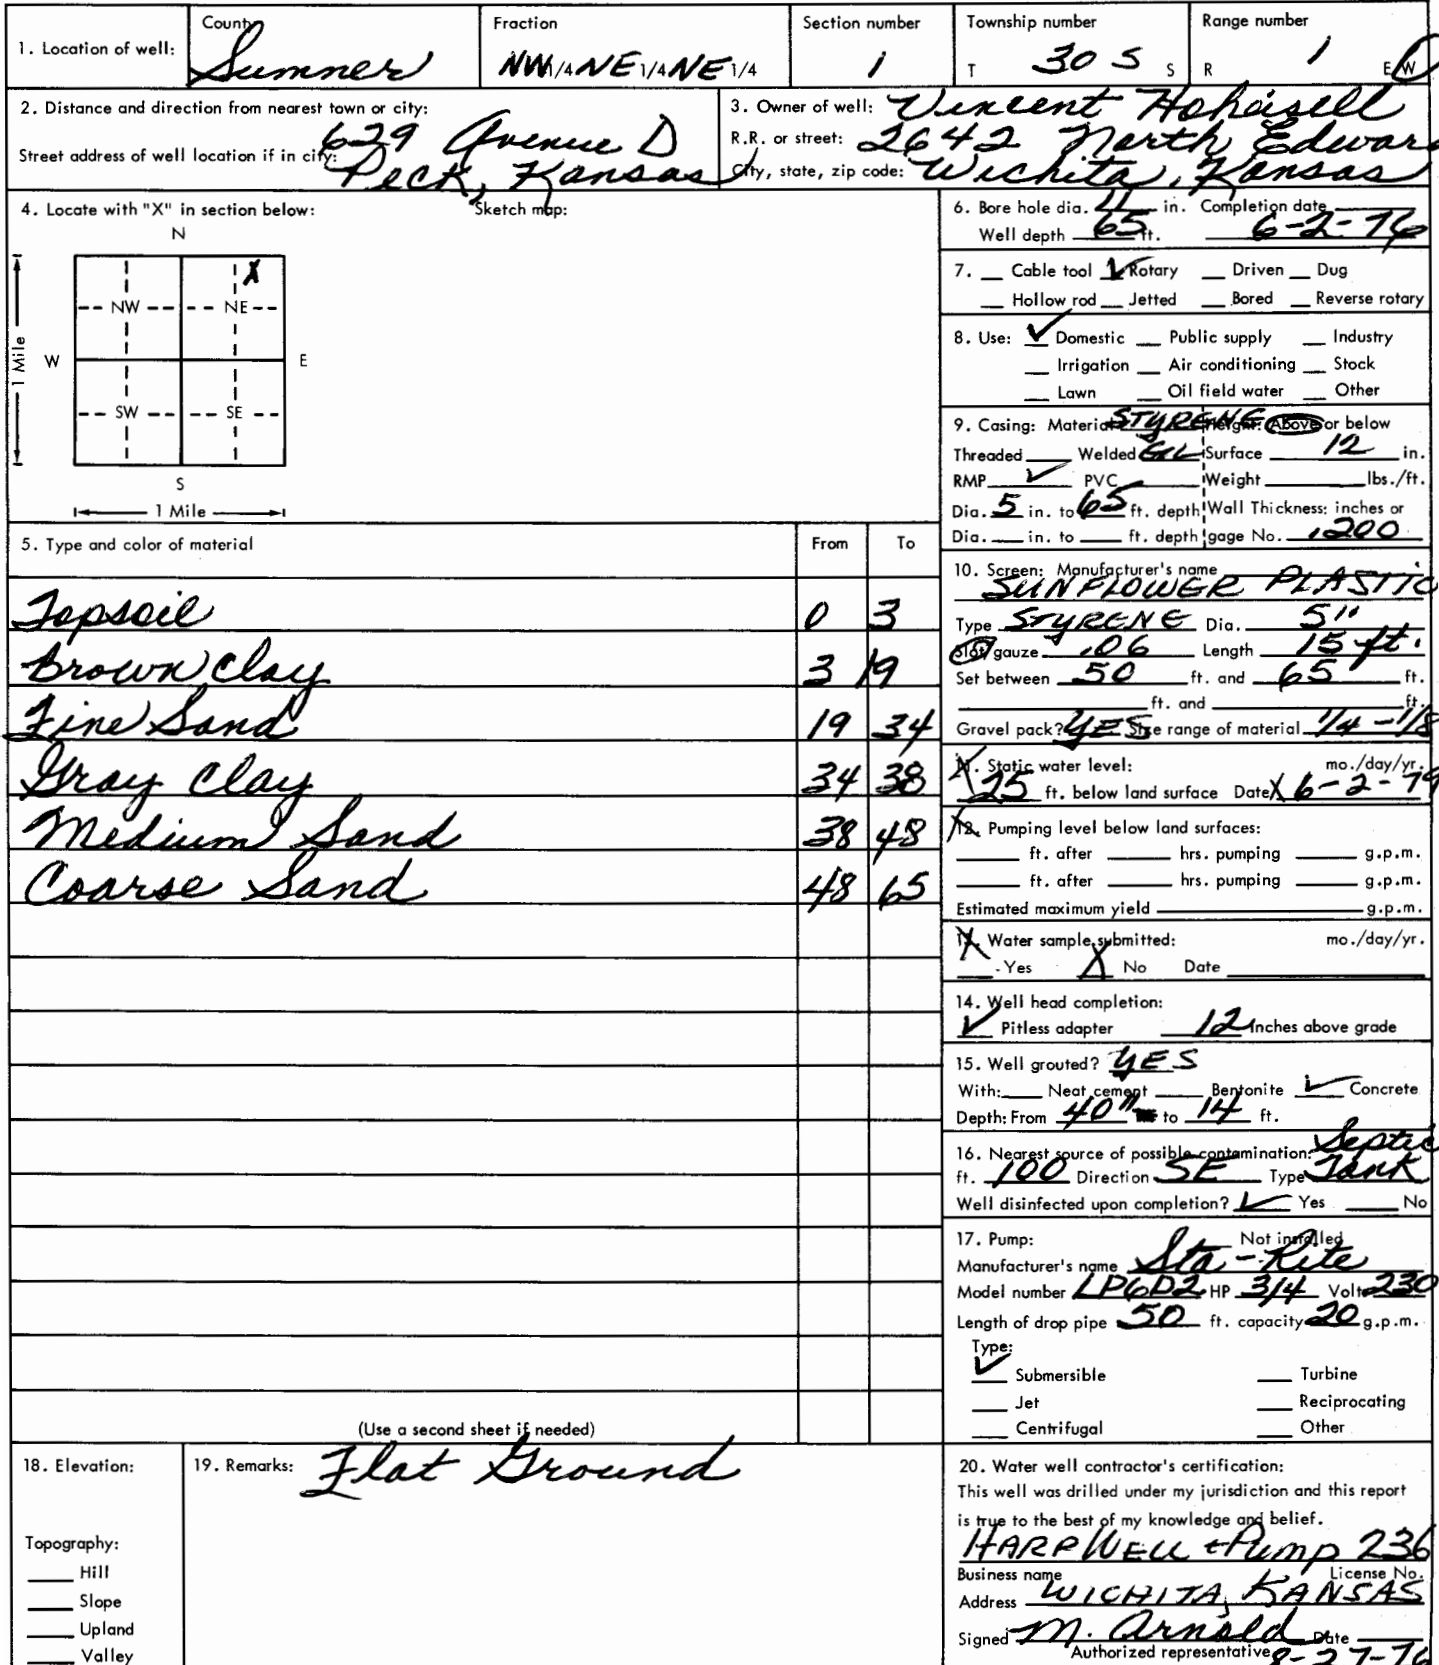 1. Location of well: County Sumner Fraction NW 1/4 NE 1/4 NE 1/4 Section number 1 Township number T 30 S S Range number R 1 E W
2. Distance and direction from nearest town or city:
Street address of well location if in city: 629 Avenue D
Peck, Kansas
3. Owner of well: Vincent
R.R. or street: 2642 North Edwar
City, state, zip code: Wichita, Kansas
4. Locate with "X" in section below: Sketch map:
N
X
NW NE
W E
1 Mile
SW SE
S
1 Mile
5. Type and color of material From To
Topsoil 0 3
Brown Clay 3 19
Fine Sand 19 34
Gray Clay 34 38
Medium Sand 38 48
Coarse Sand 48 65
(Use a second sheet if needed)
6. Bore hole dia. 11 in. Completion date
Well depth 65 ft. 6-2-76
7. Cable tool Rotary Driven Dug
Hollow rod Jetted Bored Reverse rotary
8. Use: Domestic Public supply Industry
Irrigation Air conditioning Stock
Lawn Oil field water Other
9. Casing: Material STYRENE Height: Above or below
Threaded Welded Surface 12 in.
RMP PVC Weight lbs./ft.
Dia. 5 in. to 65 ft. depth Wall Thickness: inches or
Dia. in. to ft. depth gage No. .200
10. Screen: Manufacturer's name
SUNFLOWER PLASTIC
Type STYRENE Dia. 5"
Slot/gauze .06 Length 15 ft.
Set between 50 ft. and 65 ft.
ft. and ft.
Gravel pack? YES Size range of material 1/4 - 1/8
11. Static water level: mo./day/yr.
25 ft. below land surface Date X 6-2-79
12. Pumping level below land surfaces:
ft. after hrs. pumping g.p.m.
ft. after hrs. pumping g.p.m.
Estimated maximum yield g.p.m.
13. Water sample submitted: mo./day/yr.
Yes X No Date
14. Well head completion:
Pitless adapter 12 Inches above grade
15. Well grouted? YES
With: Neat cement Bentonite Concrete
Depth: From 40" to 14 ft.
16. Nearest source of possible contamination: Septic
ft. 100 Direction SE Type Tank
Well disinfected upon completion? Yes No
17. Pump: Not installed
Manufacturer's name Sta-Rite
Model number LP6D2 HP 3/4 Volts 230
Length of drop pipe 50 ft. capacity 20 g.p.m.
Type:
Submersible Turbine
Jet Reciprocating
Centrifugal Other
18. Elevation:
Topography:
Hill
Slope
Upland
Valley
19. Remarks: Flat Ground
20. Water well contractor's certification:
This well was drilled under my jurisdiction and this report
is true to the best of my knowledge and belief.
HARP WELL + Pump 236
Business name License No.
Address WICHITA, KANSAS
Signed M. Arnold Date
Authorized representative 8-27-76